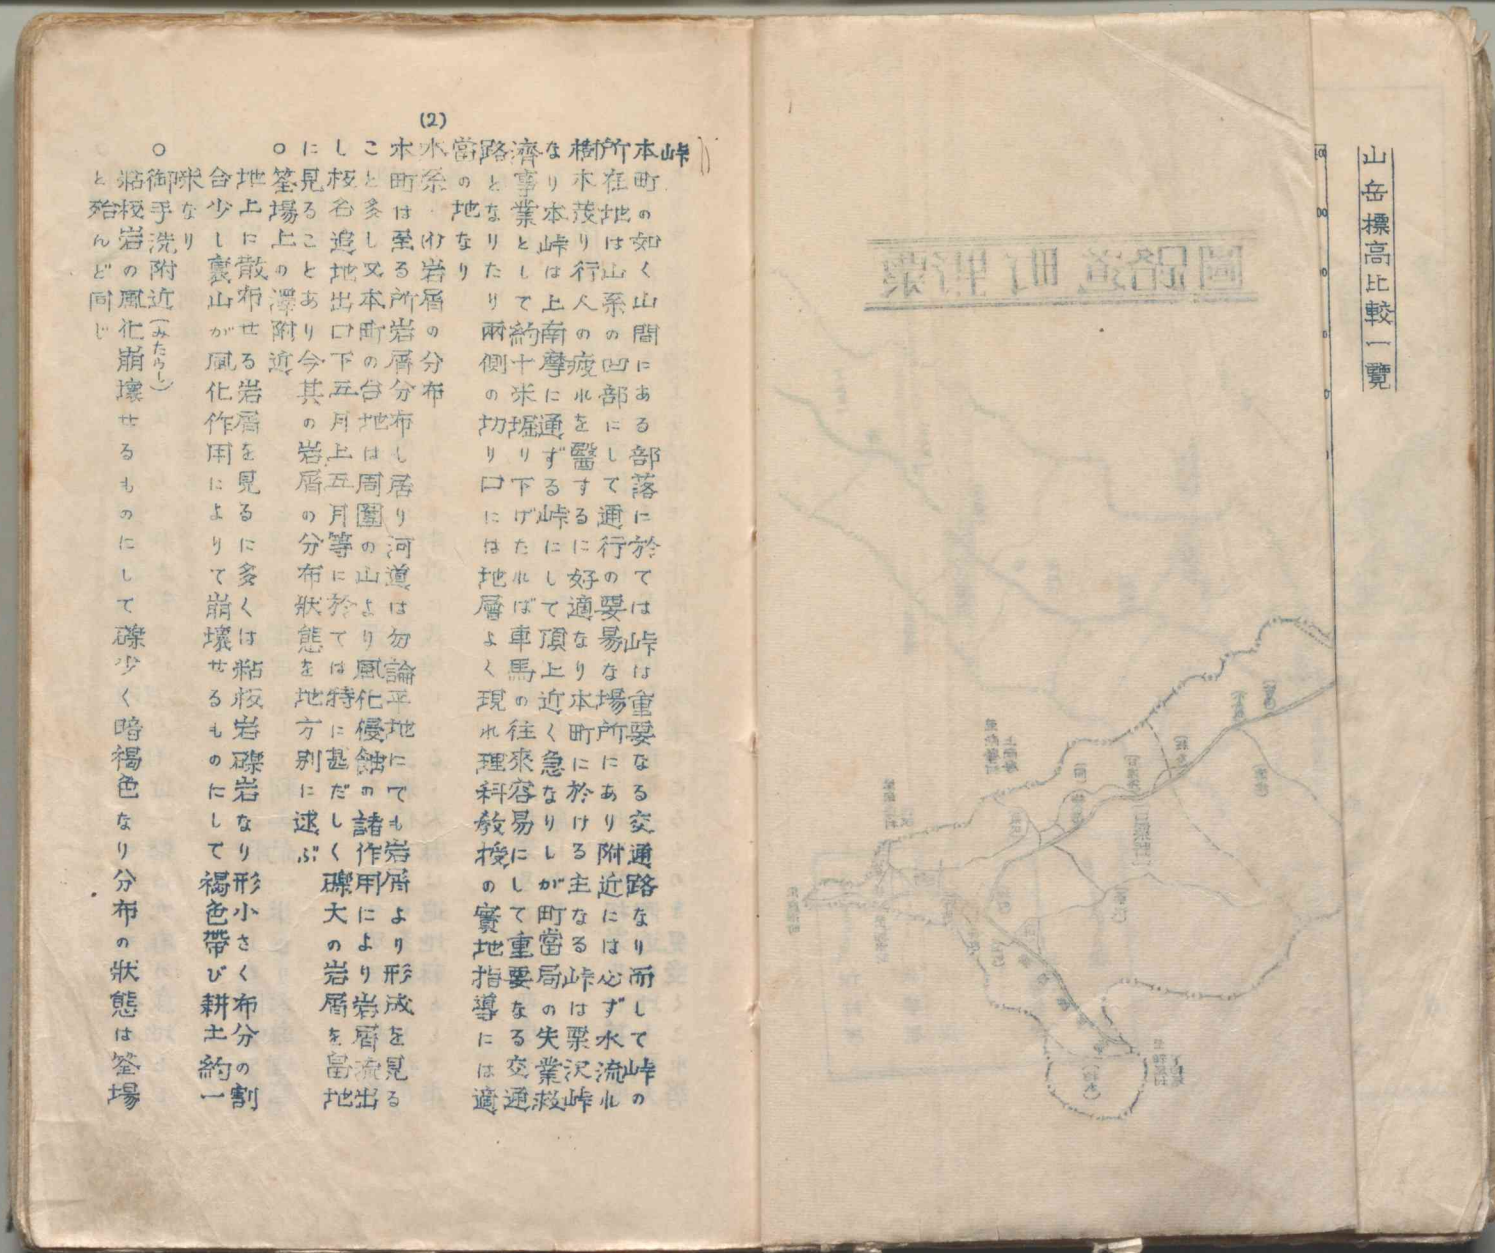 山岳標高比較一覽
(2)
峠
本町の如く山間にある部落に於ては峠は重要なる交通路なり而して峠の
所在地は山系の凹部にして通行の要易な場所にあり附近には必ず水流れ
樹木茂り行人の疲れを醫するに好適なり本町に於ける主なる峠は粟沢峠
なり本峠は上南摩に通ずる峠にして頂上近く急なりしが町當局の失業救
濟事業として約十米堀り下げたれば車馬の往來容易にして重要なる交通
路となりたり兩側の切り口には地層よく現れ理科敎授の實地指導には適
當の地なり
水系 岩屑の分布
本町は至る所岩屑分布し居り河道は勿論平地にても岩屑より形成を見る
こと多し又本町の台地は周圍の山より風化侵蝕の諸作用により岩屑流出
し板谷追地出口下五月上五月等に於ては特に甚だしく礫大の岩屑を畠地
に見ることあり今其の岩屑の分布狀態を地方別に逑ぶ
○筌場上の澤附近
地上に散布せる岩屑を見るに多くは粘板岩礫岩なり形小さく布分の割
合少し裏山が風化作用によりて崩壞せるものたして褐色帶び耕土約一
米なり
○御手洗附近(みたらし)
粘板岩の風化崩壞せるものにして礫少く暗褐色なり分布の狀態は筌場
と殆んど同じ